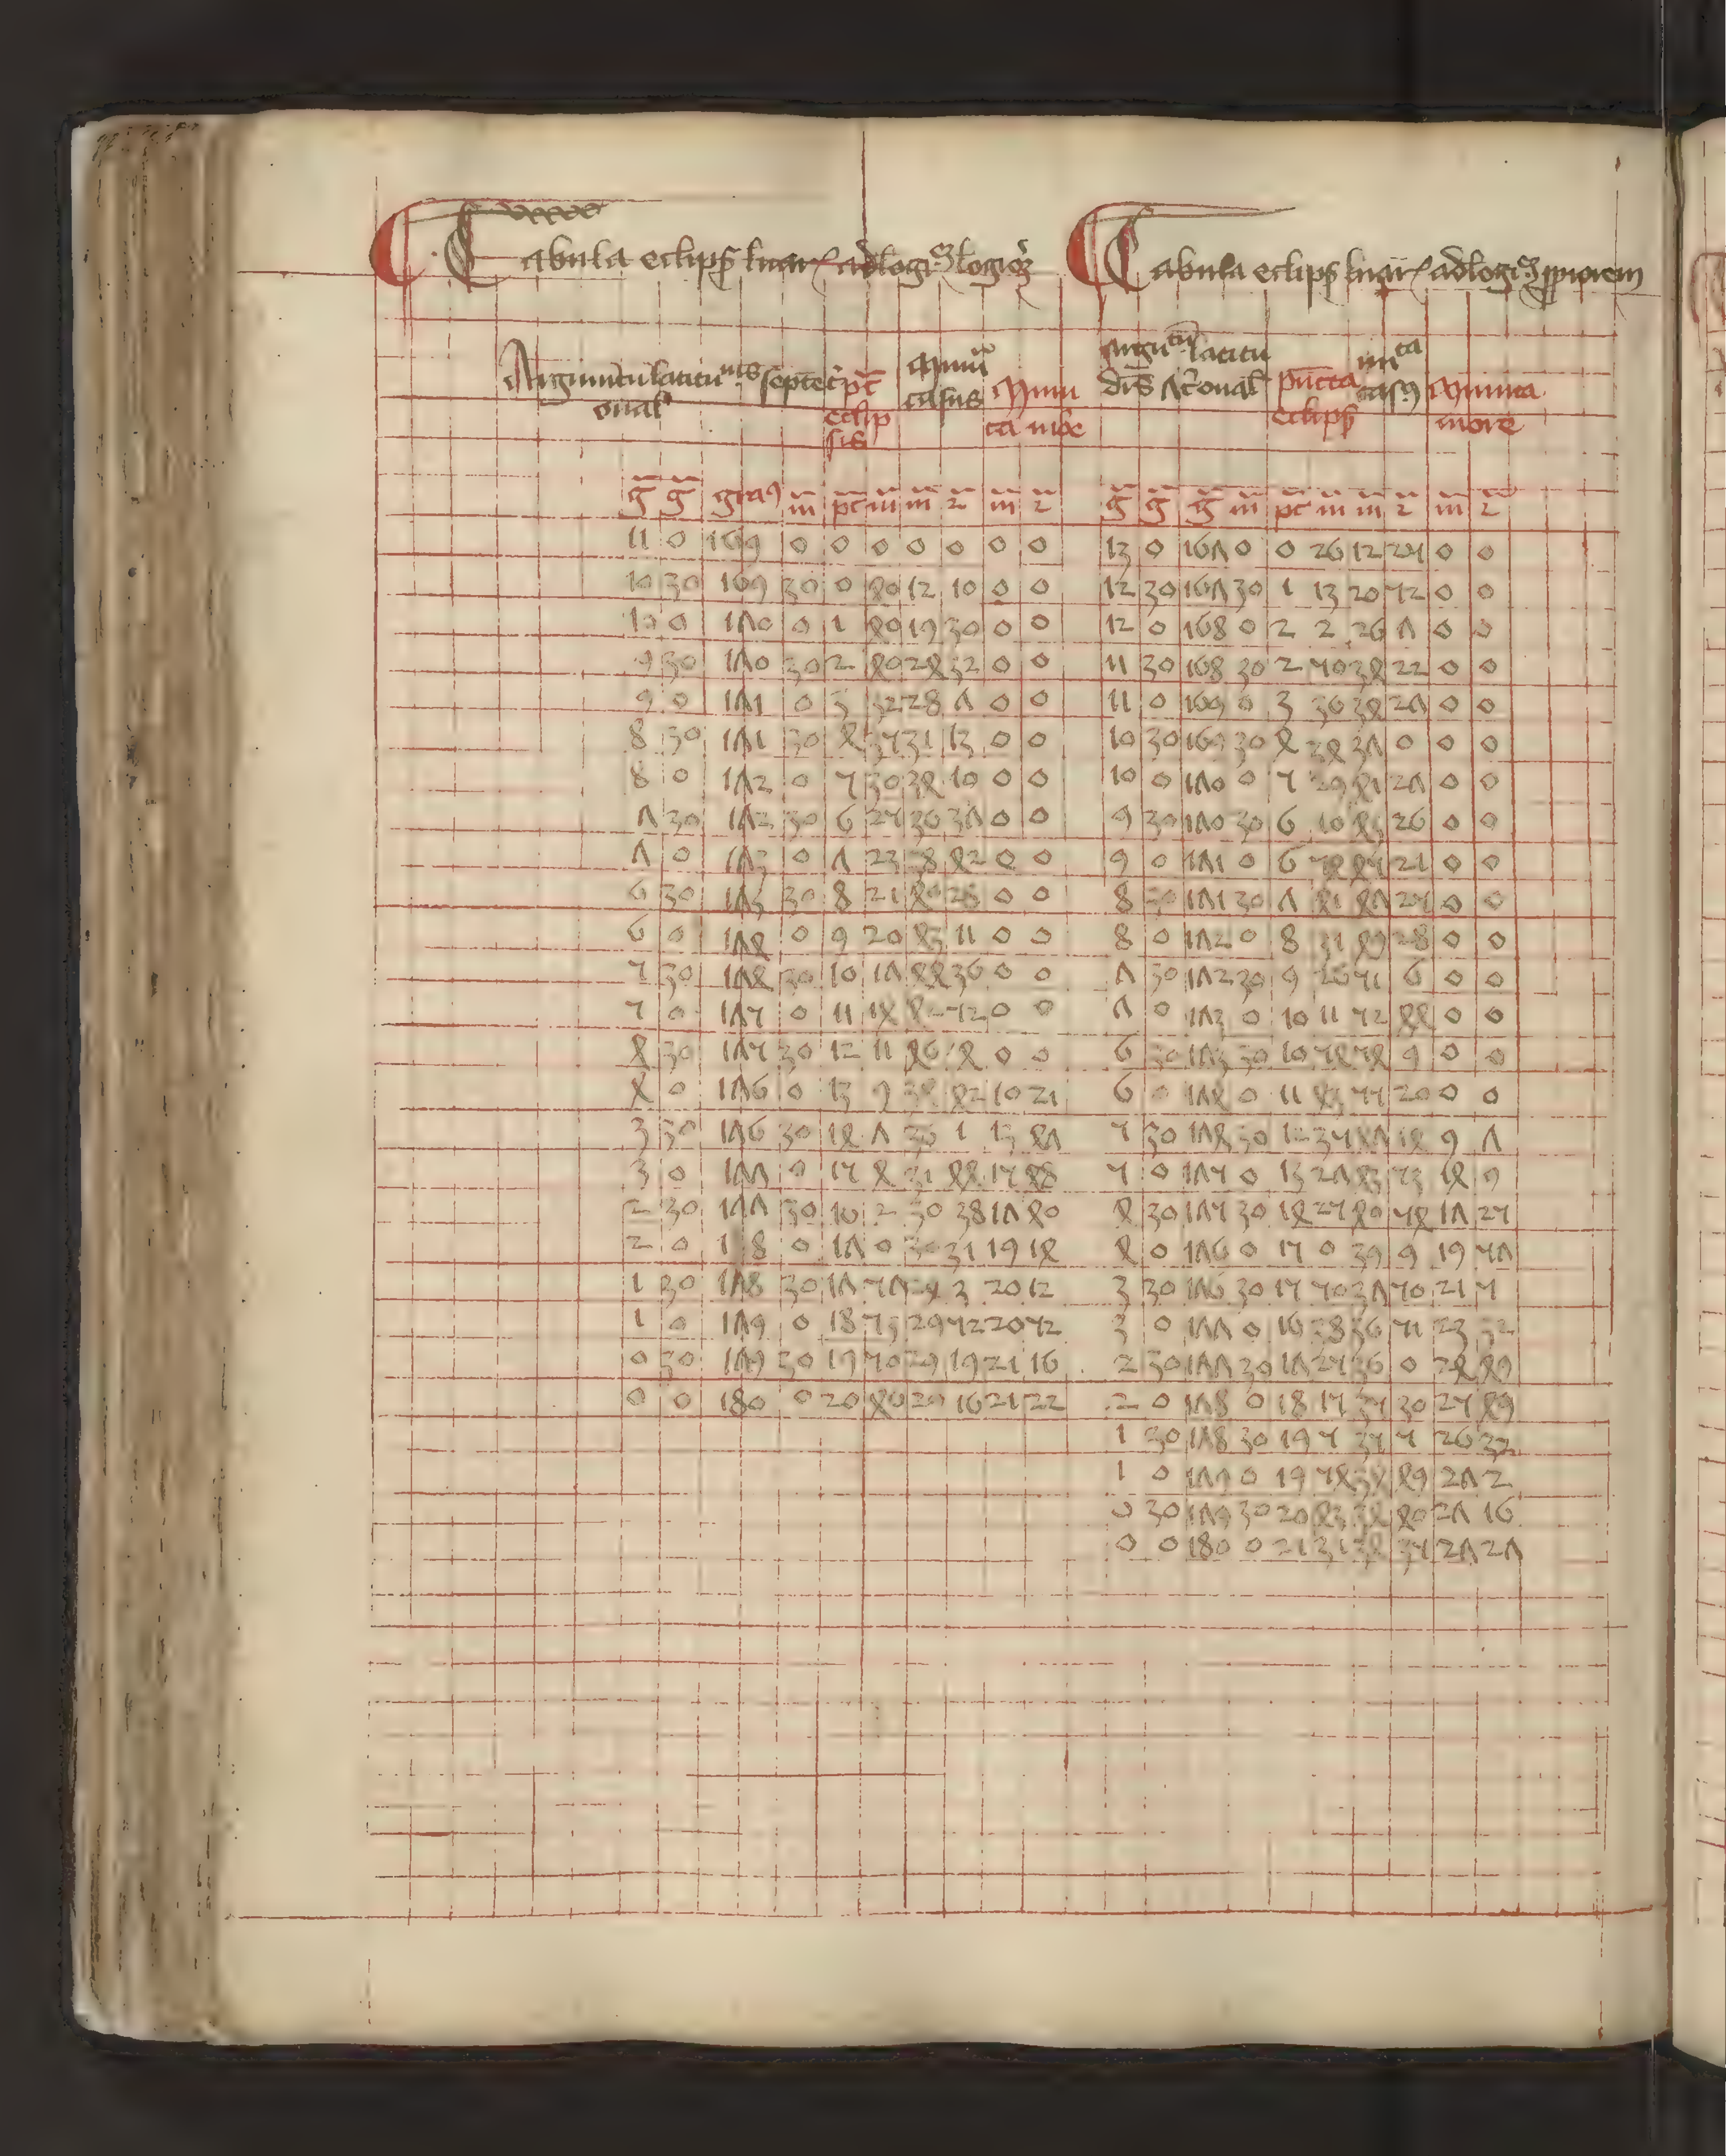 Tabula eclips lunar adlogi3 logiorē
Argumētū latitudinis septētri
onal
pūct
eclip
sis
Minu
casus
Minu
ta more
g g gradus m pct m m 2 m 2
11 0 169 0 0 0 0 0 0 0
10 30 169 30 0 40 12 10 0 0
10 0 170 0 1 40 19 30 0 0
9 30 170 30 2 40 24 32 0 0
9 0 171 0 3 32 28 7 0 0
8 30 171 30 4 35 31 13 0 0
8 0 172 0 5 30 34 10 0 0
7 30 172 30 6 25 36 37 0 0
7 0 173 0 7 23 38 42 0 0
6 30 173 30 8 21 40 28 0 0
6 0 174 0 9 20 43 11 0 0
5 30 174 30 10 17 44 36 0 0
5 0 175 0 11 14 52 0 0
4 30 175 30 12 11 46 4 0 0
4 0 176 0 13 9 34 42 10 21
3 30 176 30 14 7 33 1 13 47
3 0 177 0 15 4 31 44 15 48
2 30 177 30 16 2 30 38 17 40
2 0 178 0 17 0 30 31 19 14
1 30 178 30 17 57 3 20 12
1 0 179 0 18 53 29 52 20 52
0 30 179 30 19 50 29 19 21 16
0 0 180 0 20 46 29 16 21 22
Tabula eclips lunar adlogi3 ppiorem
Argumētū latitu
dis Acōnal
pūcta
eclips
mīta
casus
Minuta
more
g g g m pct m m 2 m 2
13 0 167 0 0 26 12 25 0 0
12 30 167 30 1 13 20 52 0 0
12 0 168 0 2 2 26 7 0 0
11 30 168 30 2 50 34 22 0 0
11 0 169 0 3 36 34 27 0 0
10 30 169 30 4 24 37 0 0 0
10 0 170 0 5 29 41 27 0 0
9 30 170 30 6 10 43 26 0 0
9 0 171 0 6 54 45 21 0 0
8 30 171 30 7 41 47 25 0 0
8 0 172 0 8 31 49 28 0 0
7 30 172 30 9 26 51 6 0 0
7 0 173 0 10 11 52 44 0 0
6 30 173 30 10 54 54 9 0 0
6 0 174 0 11 43 55 20 0 0
5 30 174 30 12 35 47 14 9 7
5 0 175 0 13 27 43 53 14 9
4 30 175 30 14 25 40 54 17 25
4 0 176 0 15 0 39 9 19 57
3 30 176 30 15 50 37 50 21 5
3 0 177 0 16 38 36 51 23 32
2 30 177 30 17 25 36 0 24 49
2 0 178 0 18 15 35 30 25 49
1 30 178 30 19 5 35 5 26 32
1 0 179 0 19 54 34 49 27 2
0 30 179 30 20 43 34 40 27 16
0 0 180 0 21 31 34 35 27 27